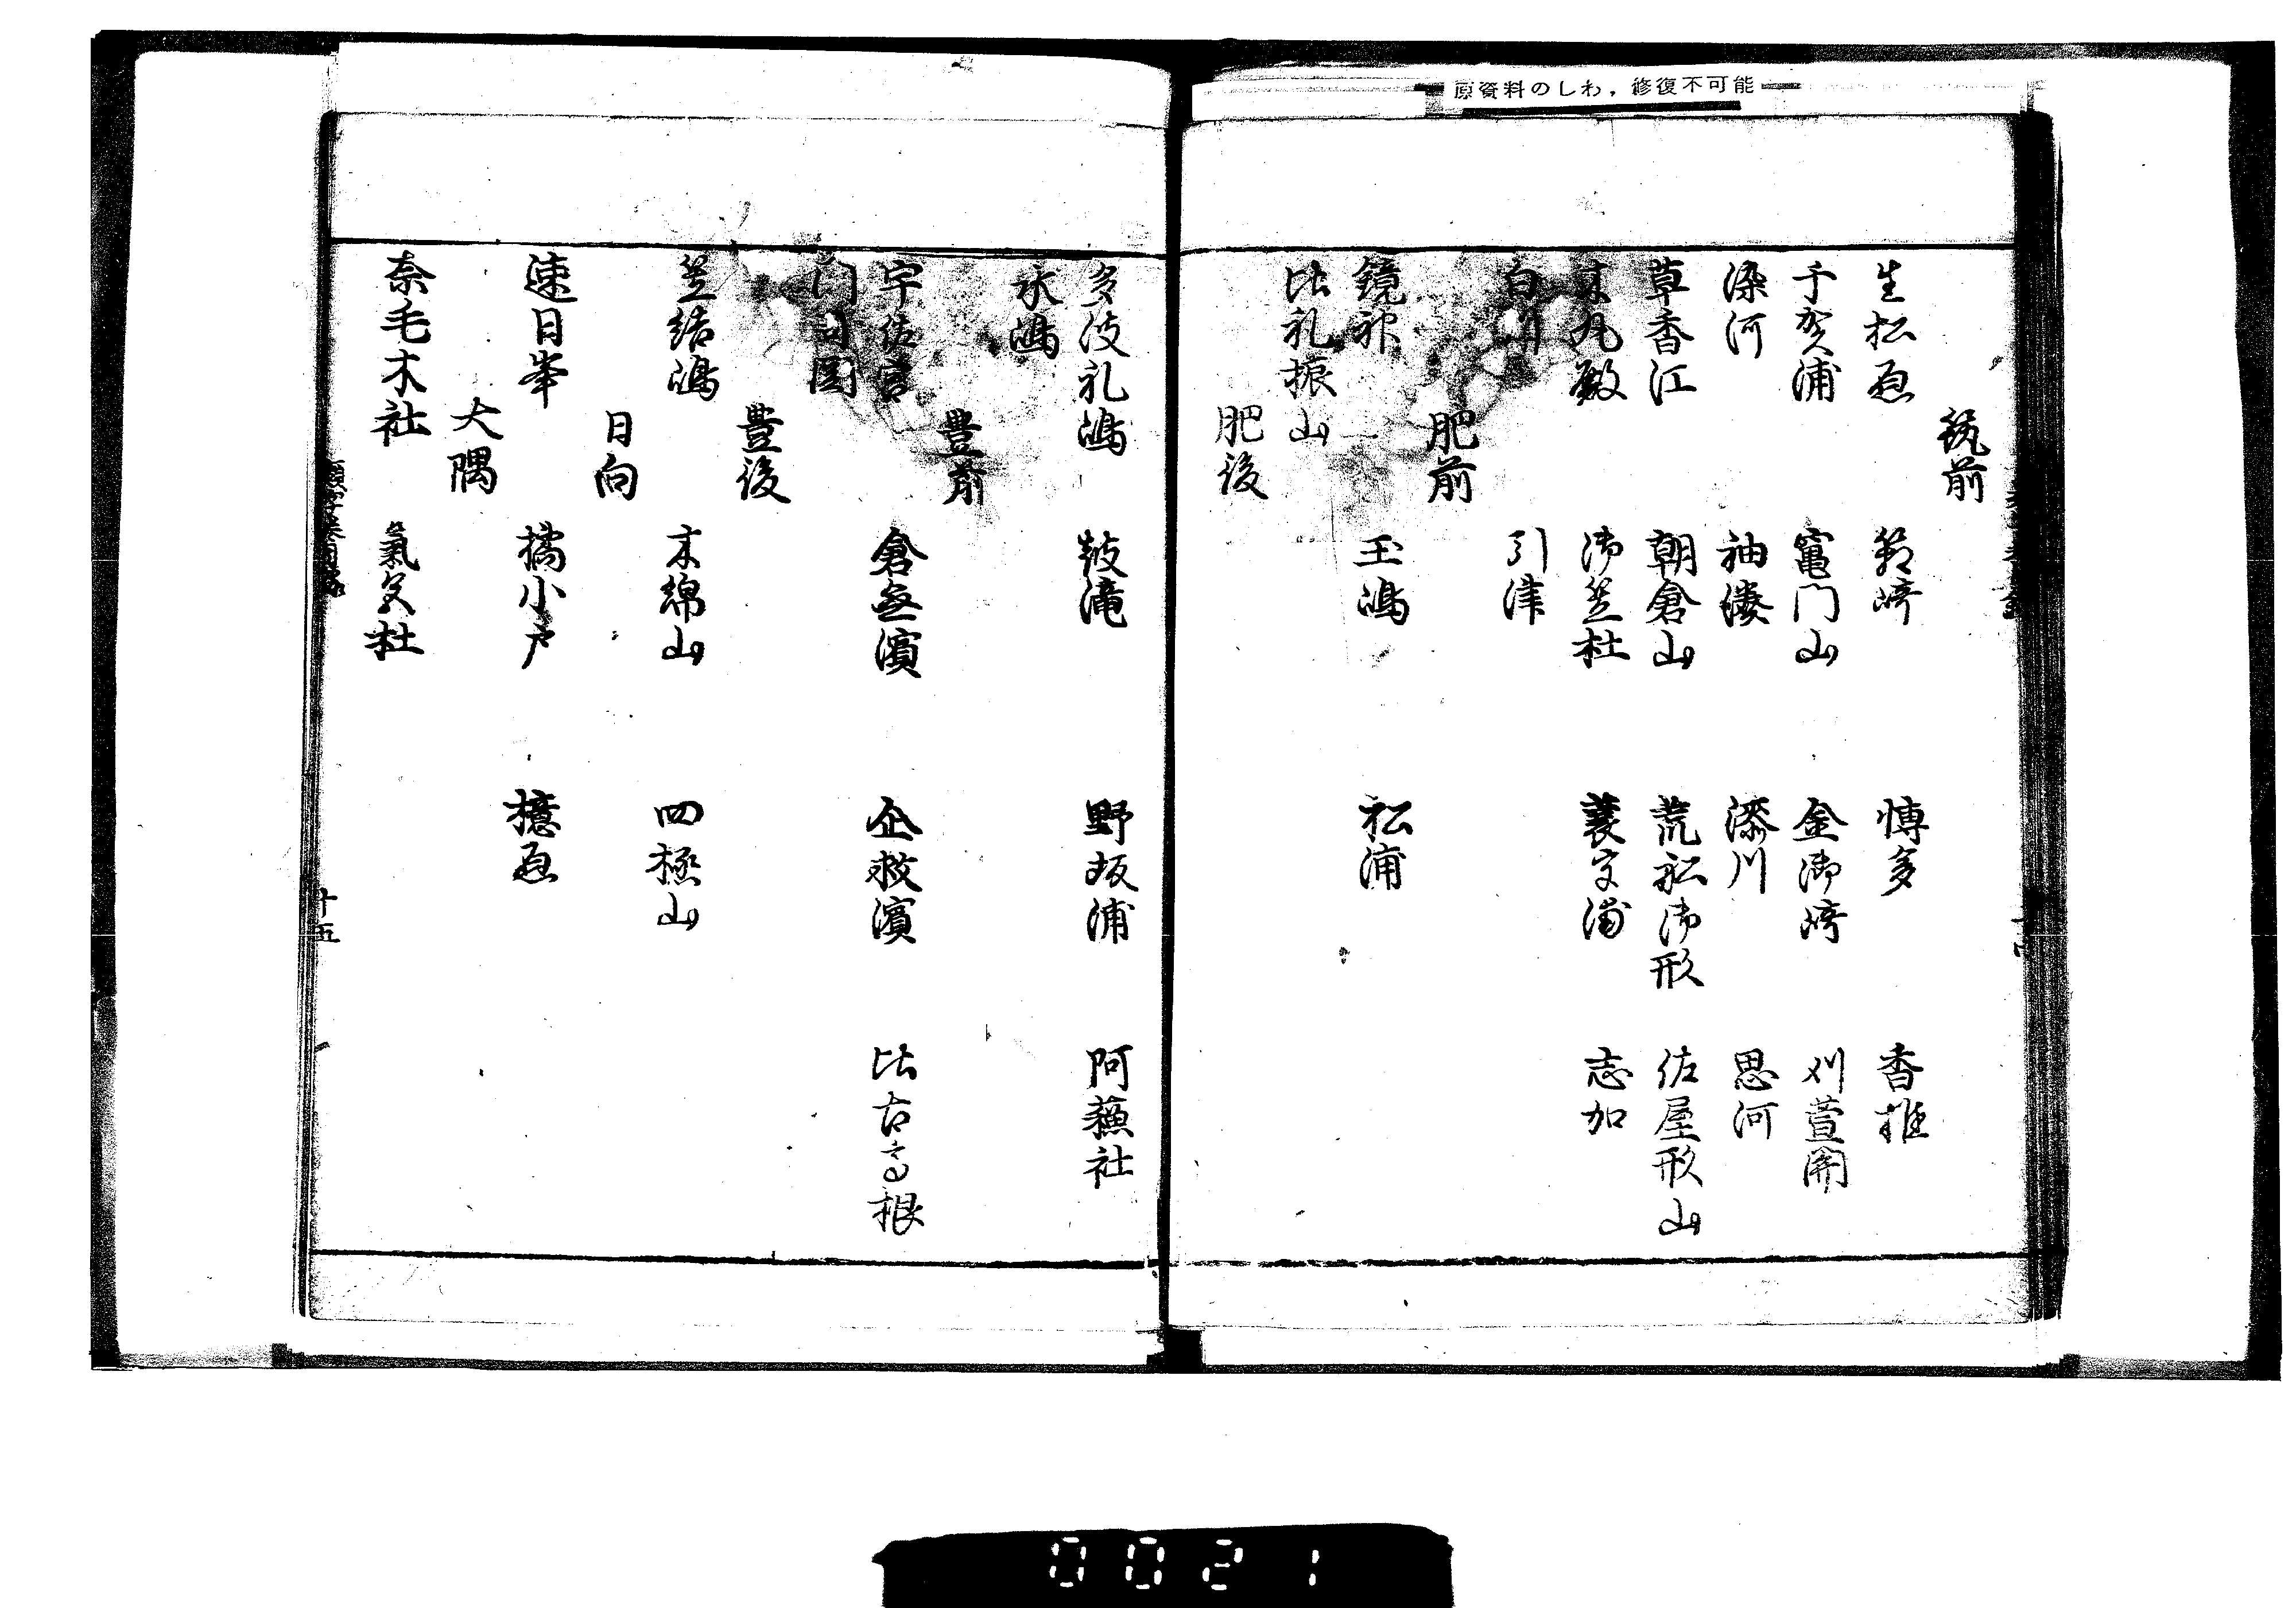 原資料のしわ，修復不可能
筑前
生松原 筥崎 博多 香椎
千賀浦 竈門山 金御崎 刈萱関
染河 袖湊 漆川 思河
草香江 朝倉山 荒船御形 佐屋形山
木丸殿 御笠杜 蓑宇浦 志加
白川 引津
肥前
鏡神 玉嶋 松浦
比礼振山
肥後
多波礼嶋 鼓滝 野坂浦 阿蘓社
水嶋
豊前
宇佐宮 倉無濱 企救濱 比古高根
门司関
豊後
笠結嶋 木綿山 四極山
日向
速日峯 橘小戸 檍原
大隅
奈毛木社 氣色杜
十五
0021